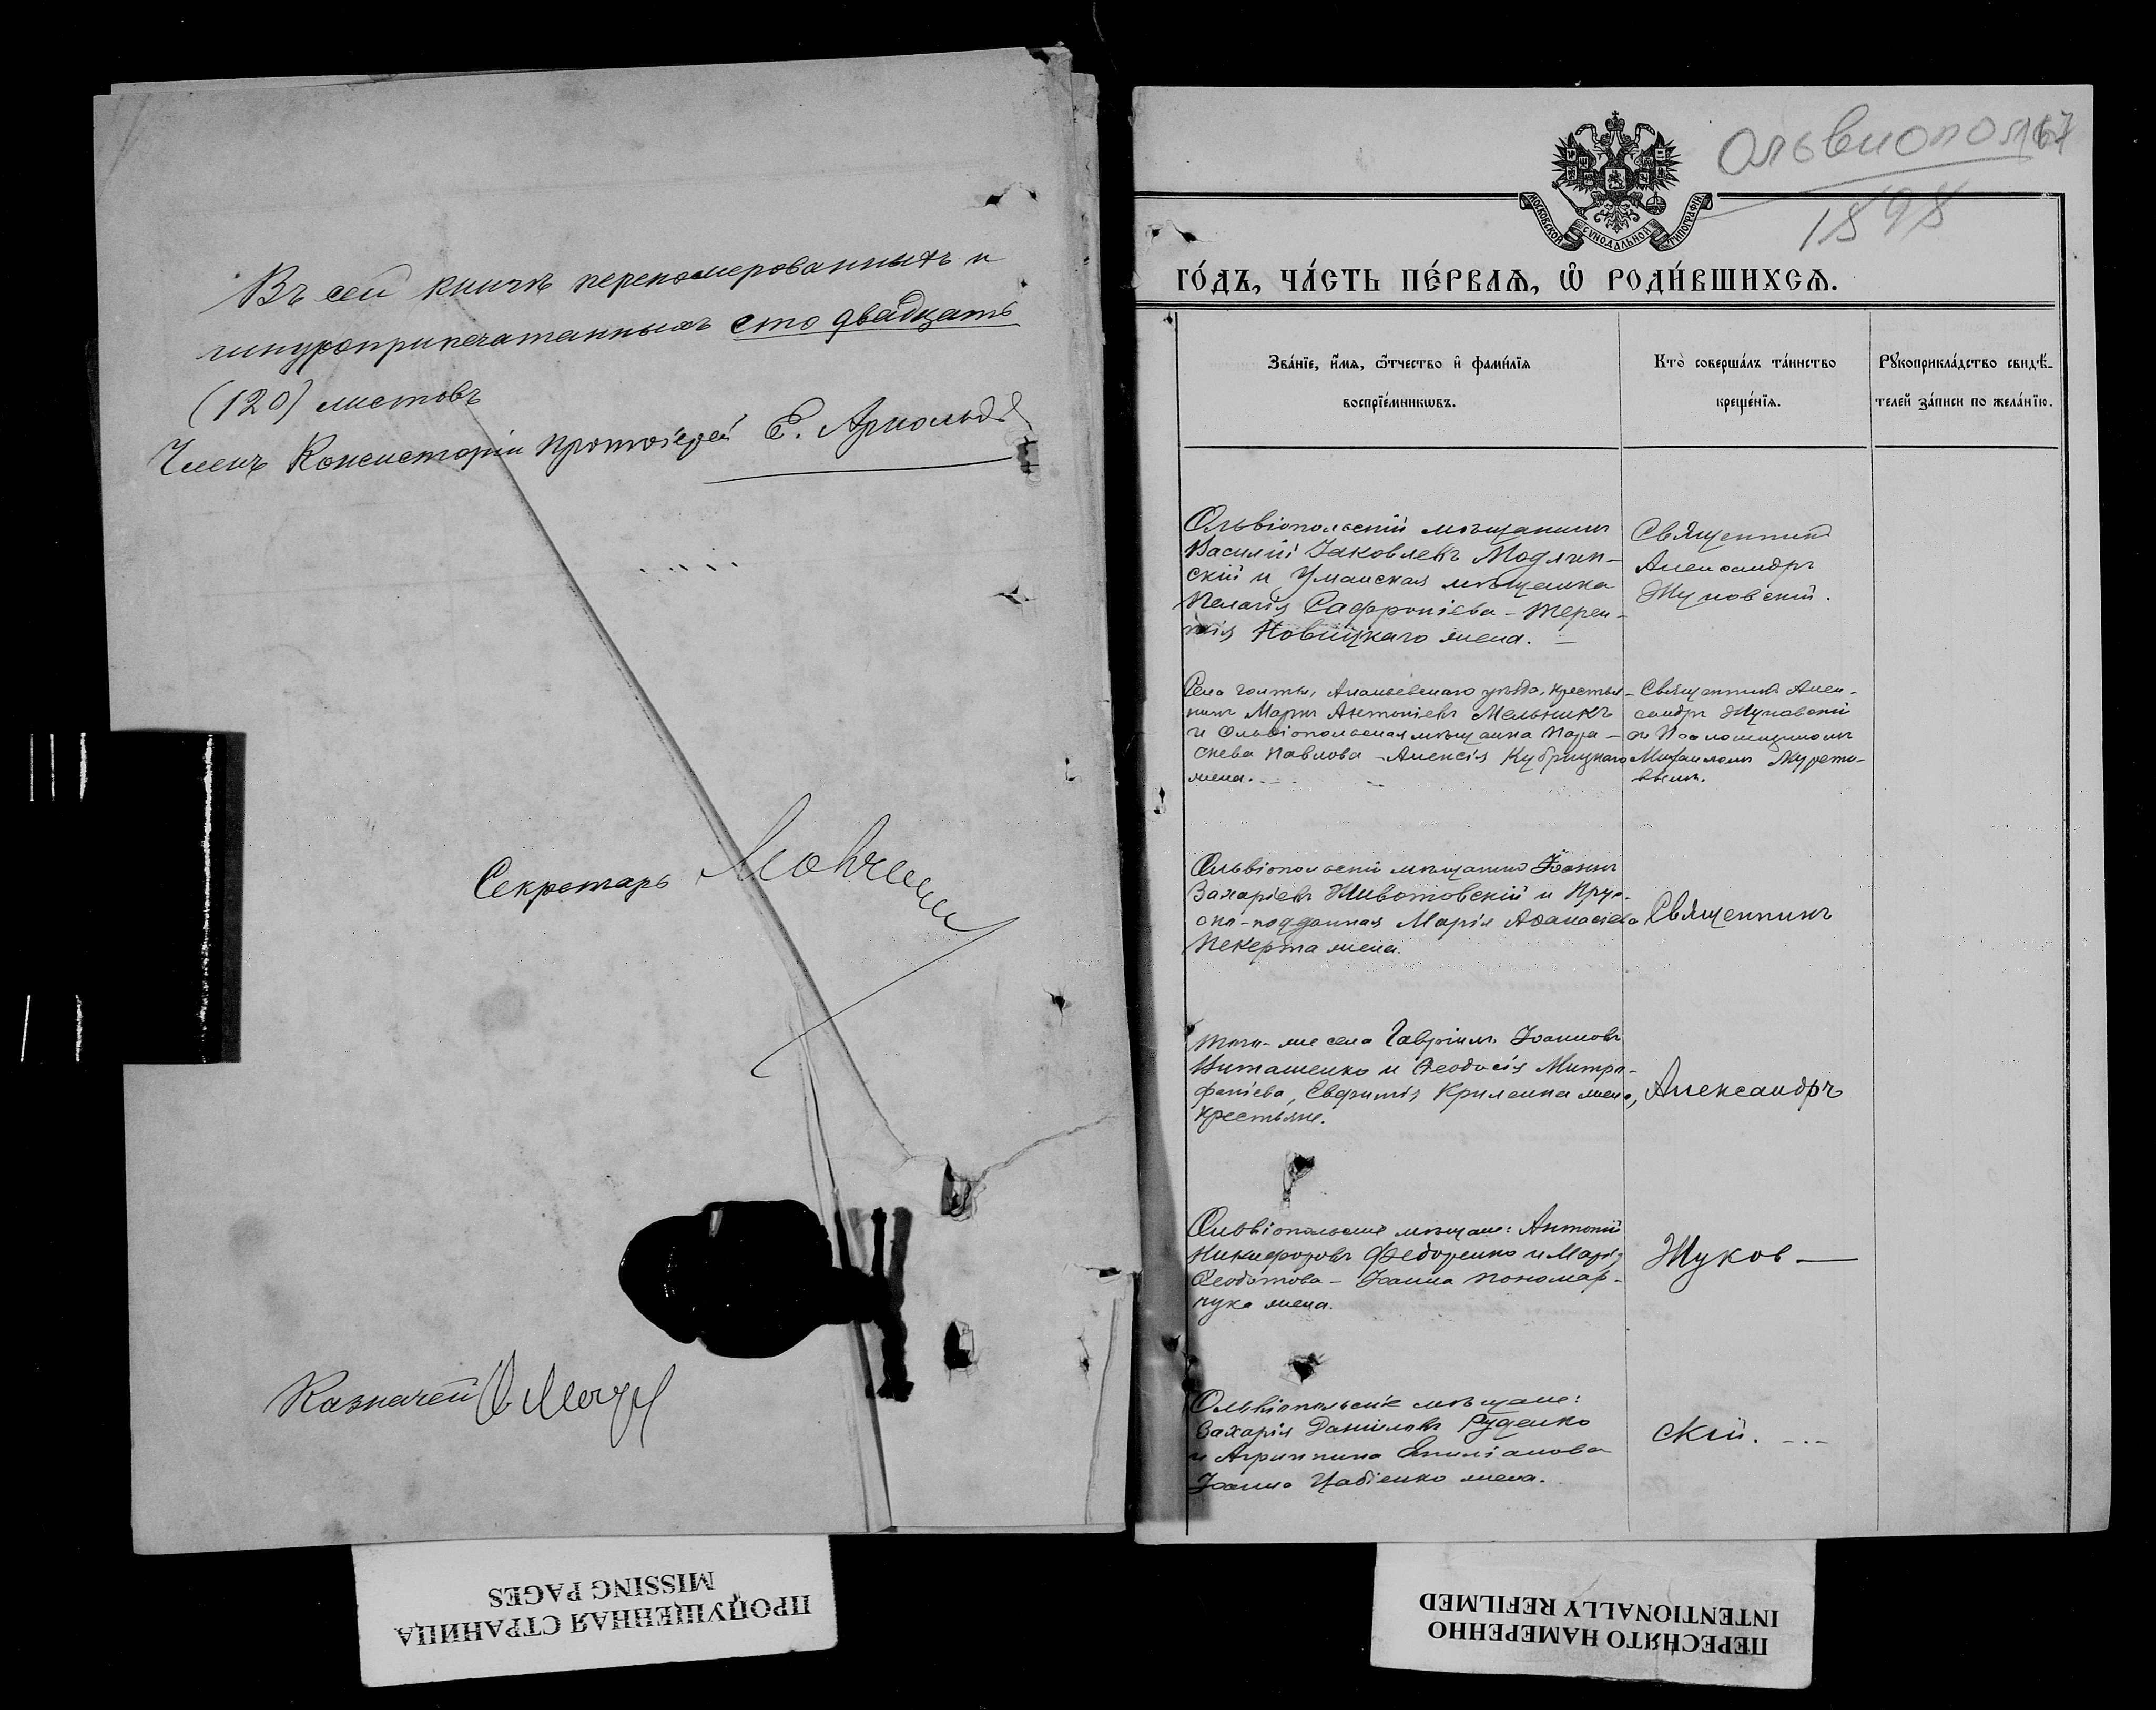 Въ сей книгѣ перепомерованныхъ и
шнуроприпечатанныхъ сто двадцать
(120) листовъ
Членъ Консисторіи протоіерей Е. Арнольдъ
Секретарь
Казначей
ПРОПУЩЕННАЯ СТРАНИЦА
MISSING PAGES
Ольвиополь 167
1898
МОСКОВСКОЙ СѴНОДАЛЬНОЙ ТИПОГРАФІИ
ГО́ДЪ, ЧА́СТЬ ПЕ́РВАѦ, Ѡ҆ РОДИ́ВШИХСѦ.
Зва́нїе, и҆́мѧ, ѻ҆́тчество и҆ фами́лїѧ
воспрїе́мникѡвъ.
Кто̀ соверша́лъ та́инство
креще́нїѧ.
Рꙋкоприкла́дство свидѣ́-
телей за́писи по жела́нїю.
Ольвіопольскій мѣщанинъ
Василій Іаковлевъ Модлин-
скій и Уманская мѣщанка
Пелагія Сафроніева - Терен-
тія Новицкаго жена. —
Священникъ
Александръ
Жуковскій.
Села Голты, Ананьевскаго уѣзда, крестья-
нинъ Маркъ Антоніевъ Мельникъ
и Ольвіопольская мѣщанка Пара-
скева Павлова - Алексія Кубрицкаго
жена. —
Священникъ Алек-
сандръ Жуковскій
съ Псаломщикомъ
Михаиломъ
Ольвіопольскій мѣщанинъ Іоаннъ
Захаріевъ Животовскій и Прус-
ско-подданная Марія Аѳанасіева
Пекерта жена.
Священникъ
того-же села Гавріилъ Іоанновъ
Виташенко и Ѳеодосія Митро-
фаніева, Евфимія Криленка жена,
крестьяне.
Александръ
Ольвіопольскіе мѣщане: Антоній
Никифоровъ Федоренко и Марія
Ѳеодотова - Іоанна Пономар-
чука жена.
Жуков —
Ольвіопольскіе мѣщане:
Захарія Даніиловъ Руденко
и Агриппина Емиліанова
Іоанна Цабіенко жена.
скій. —
ПЕРЕСНЯТО НАМЕРЕННО
INTENTIONALLY REFILMED